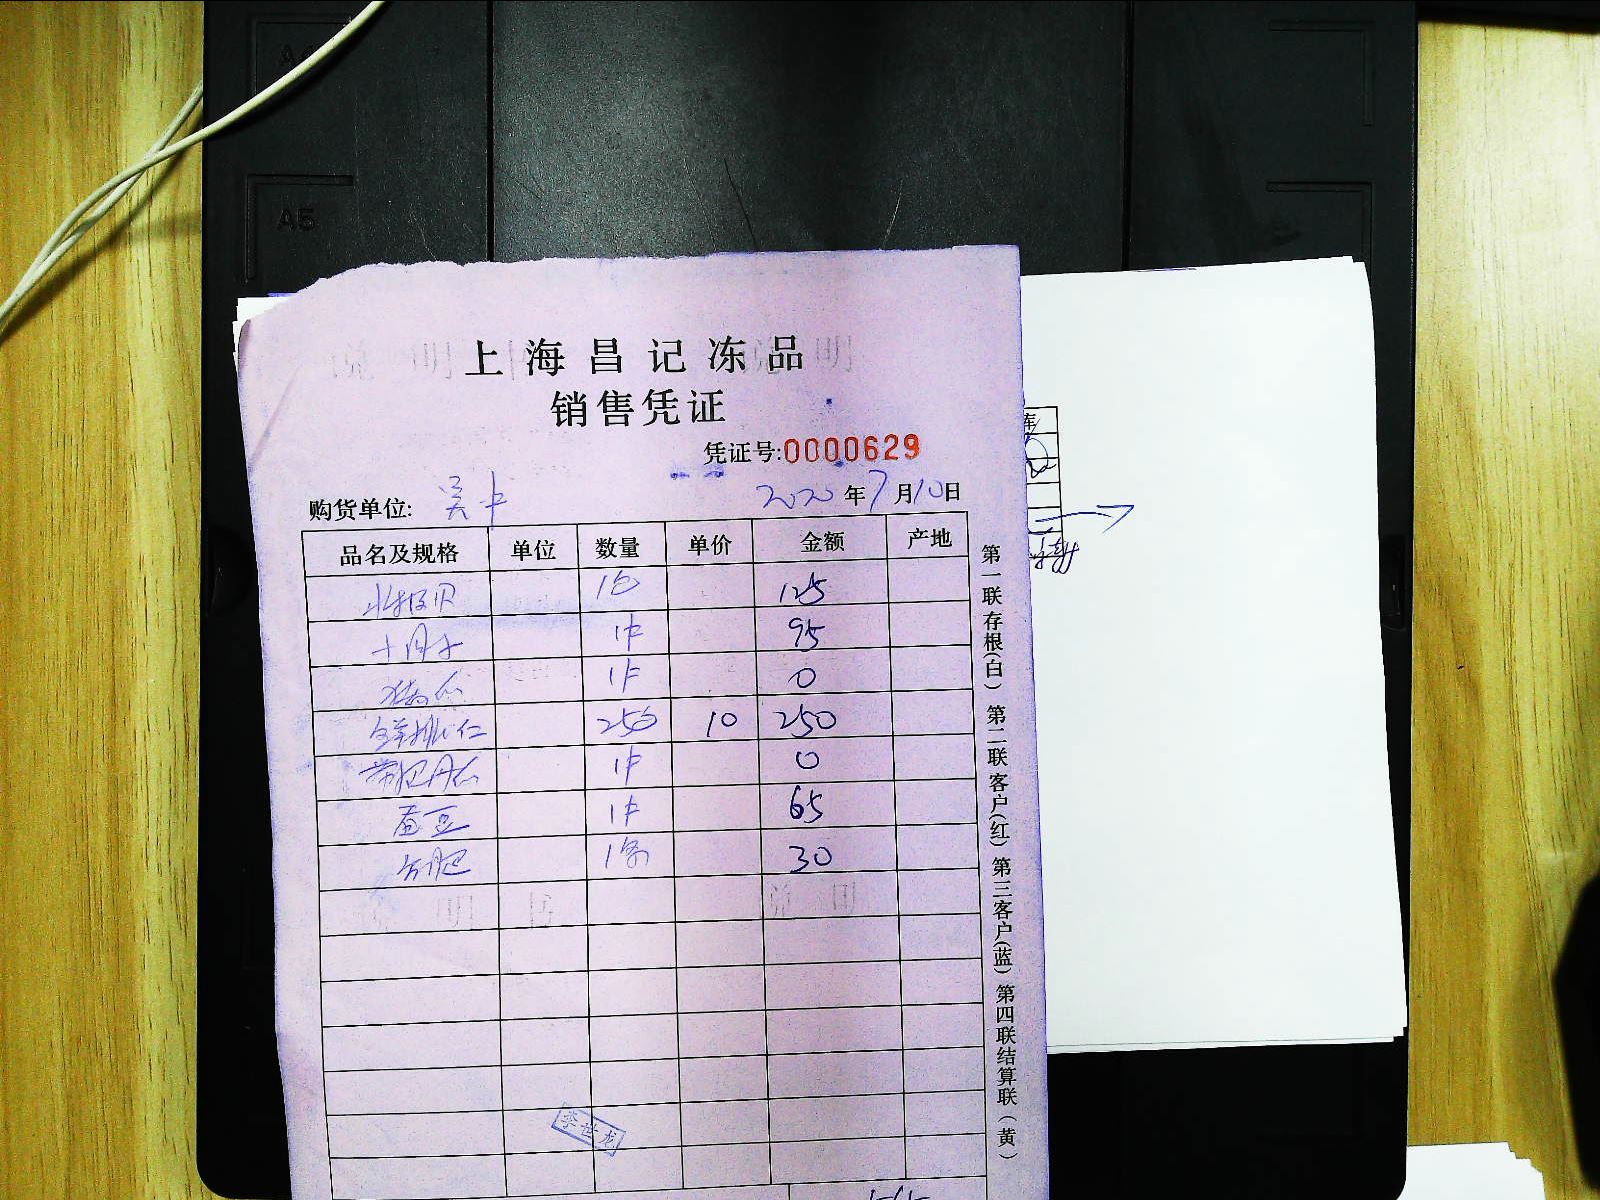 A4
A5
上海昌记冻品
销售凭证
凭证号:0000629
购货单位: 吴中 2020年7月10日
品名及规格 单位 数量 单价 金额 产地
北极贝 1包 125
1件 95
1件 0
鲜桃仁 25包 10 250
1件 0
蚕豆 1件 65
1条 30
李世龙
第一联存根(白) 第二联客户(红) 第三客户(蓝) 第四联结算联(黄)
库